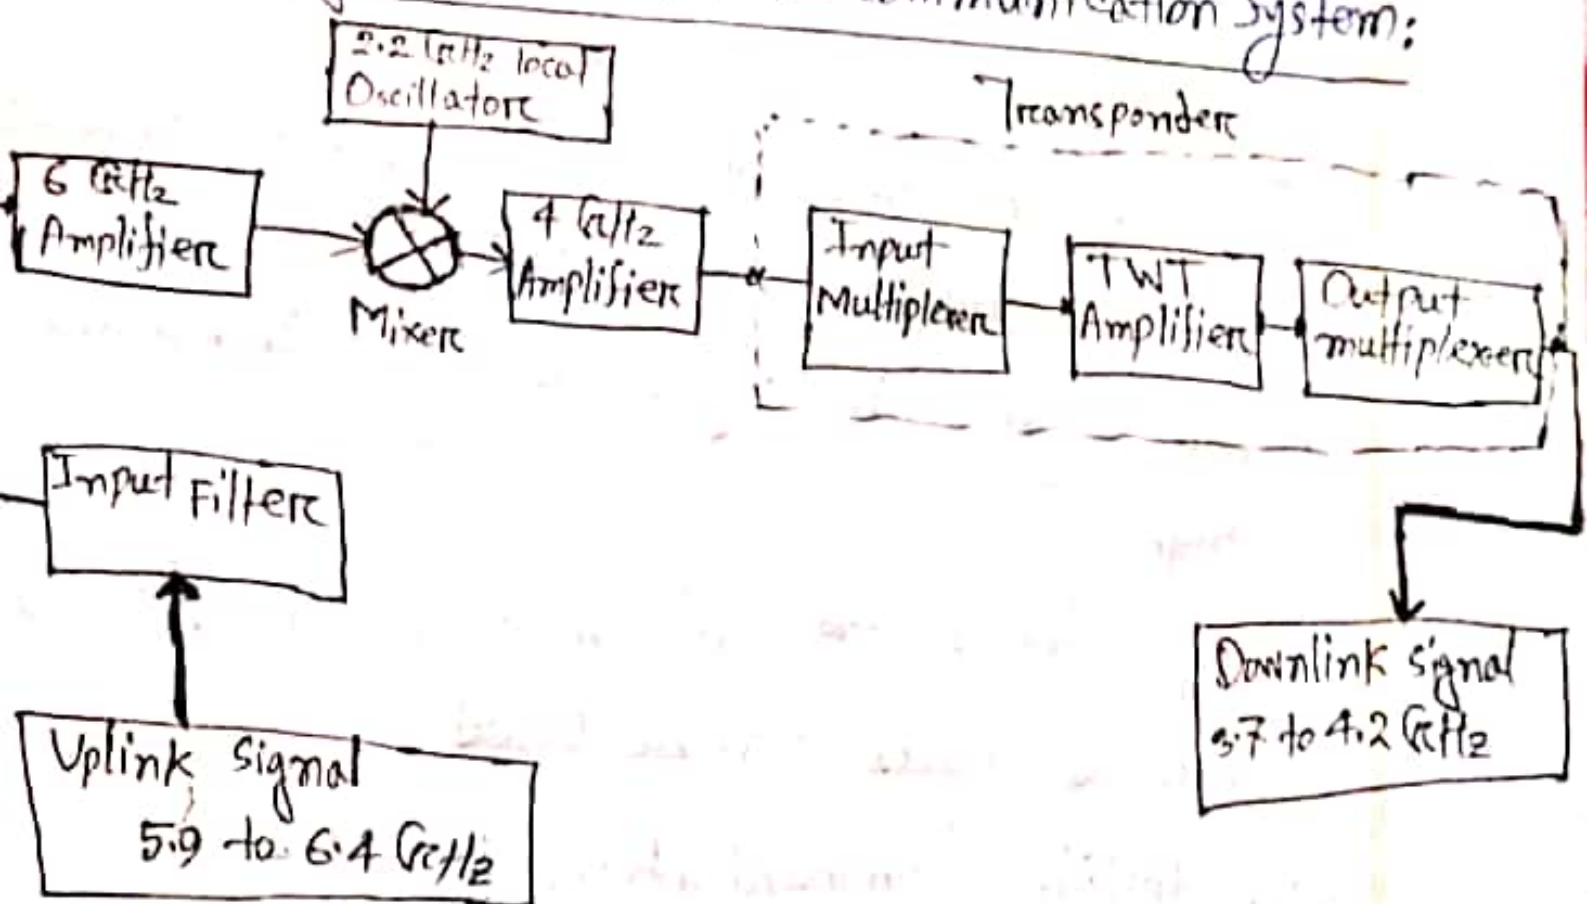 Communication System:
2.2 GHz local
Oscillator
Transponder
6 GHz
Amplifier
Mixer
4 GHz
Amplifier
Input
Multiplexer
TWT
Amplifier
Output
multiplexer
Input Filter
Uplink Signal
5.9 to 6.4 GHz
Downlink signal
3.7 to 4.2 GHz